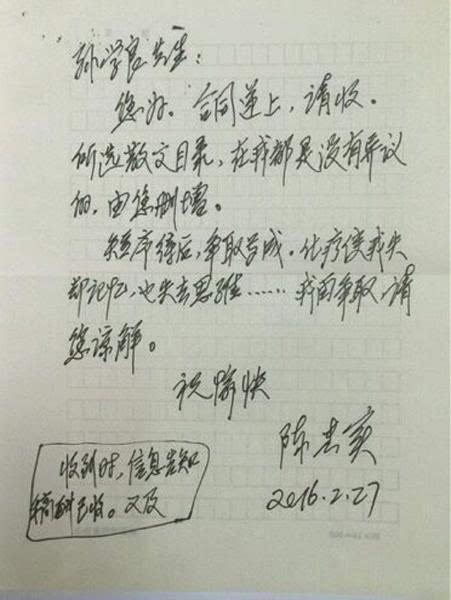 孙学良先生：
您好。合同送上，请收。
所选散文目录，在我都是没有异议
的，由您删增。
短序得后，争取写成。化疗使我失
却记忆，也失去思维……我再争取，请
您谅解。
祝愉快
陈忠实
2016.2.27
收到时，信息告知
稿酬已收。又及